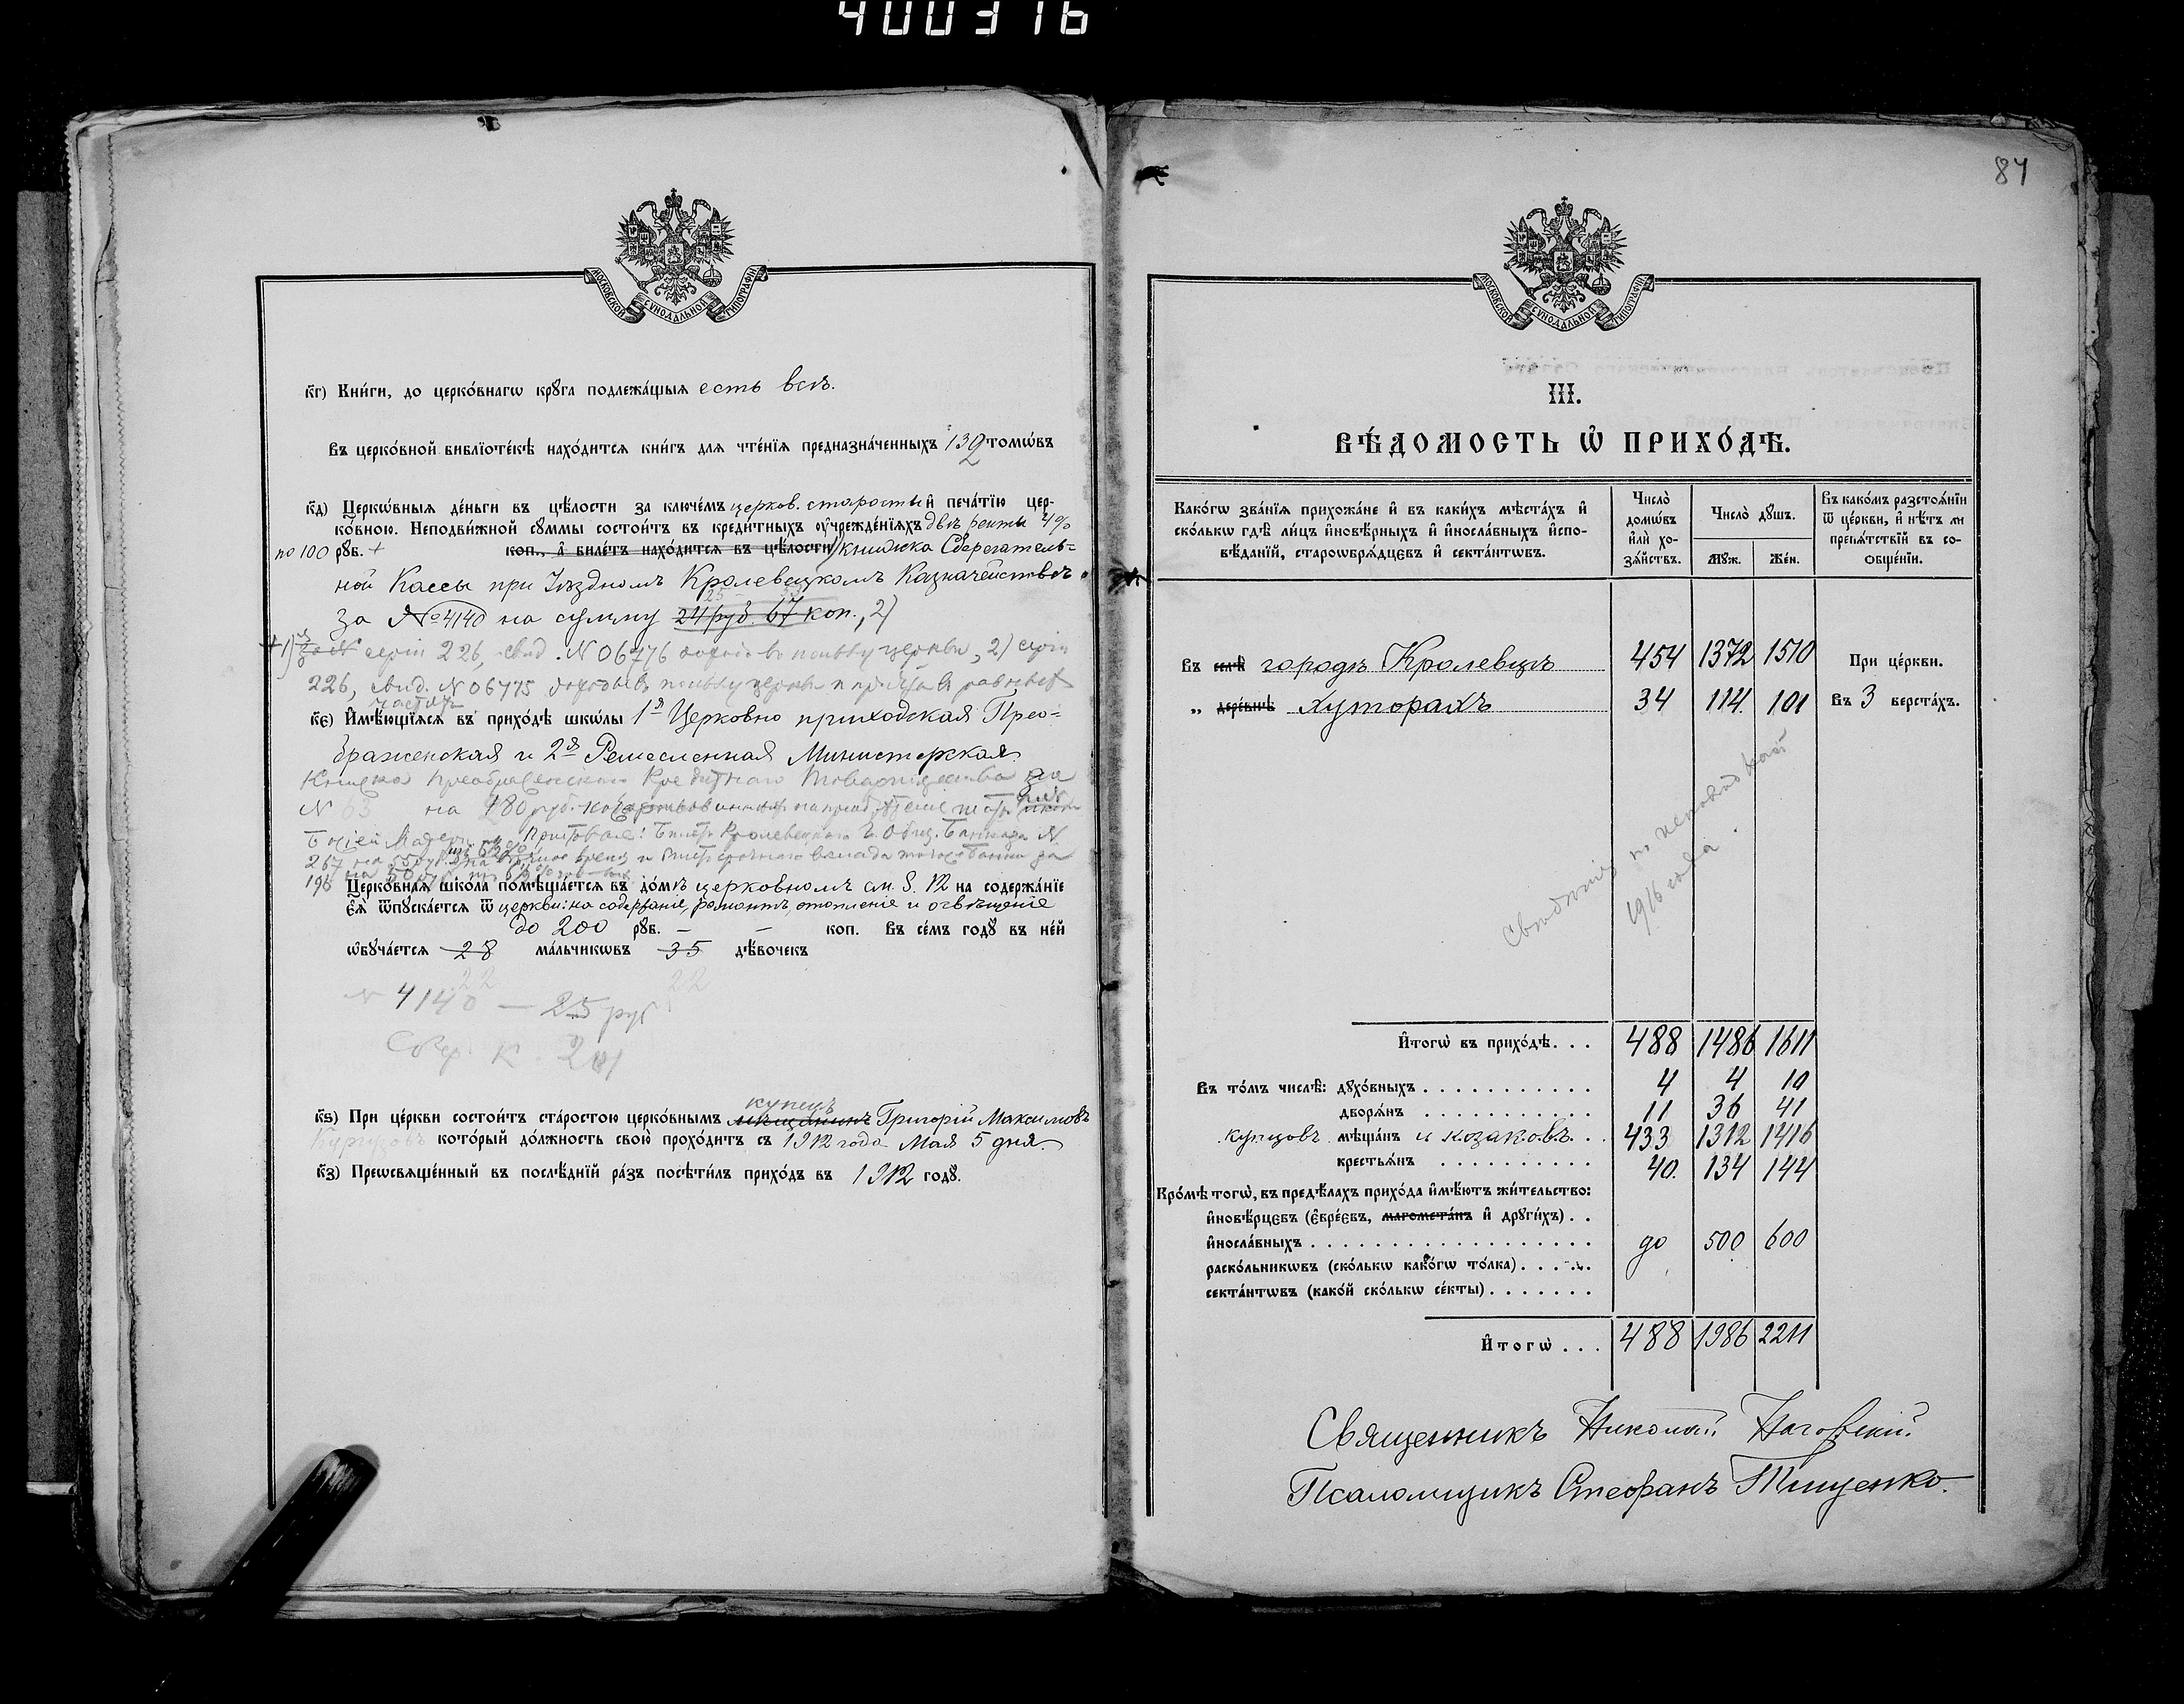 400316
МОСКОВСКОЙ СѴНОДАЛЬНОЙ ТИПОГРАФІИ
к҃г) Кни́ги, до церко́внагѡ крꙋ́га подлежа́щыя есть всѣ.
Въ церко́вной библїоте́кѣ нахо́дится кни́гъ для чте́нїя предназна́ченныхъ 132 томѡ́въ
к҃д) Церкѡ́вныя де́ньги въ цѣ́лости за ключе́мъ церков. старосты и҆ печа́тїю цер-
ко́вною. Неподви́жной сꙋ́ммы состои́тъ въ креди́тныхъ ᲂу҆чрежде́нїяхъ двѣ ренты 4%
по 100 рꙋб. + коп., а҆ биле́тъ нахо́дится въ цѣ́лости книжка Сберегатель-
ной Кассы при Уѣздномъ Кролевецкомъ Казначействѣ
за №4140 на сумму 24 руб. 67 коп., 2)
серіи 226, свид. N 06776 въ пользу церкви, 2) серіи
226, свид. N 06775 въ пользу церкви и причта въ равныхъ
частяхъ
к҃є) И҆мѣ́ющїяся въ прихо́дѣ шкѡ́лы 1я Церковно приходская Прео-
браженская и 2я Ремесленная Министерская.
Книжка Преображенскаго Кредитнаго Товарищества за
N 63 на 180 руб.
Божіей Матери
267 на
196
Церко́вная шко́ла помѣща́ется въ до́мѣ церковномъ см. §. 12 на содержа́нїе
є҆ѧ̀ ѿпꙋска́ется ѿ церкви: на содержаніе, ремонтъ, отопленіе и освѣщеніе
до 200 рꙋб. – – коп. Въ се́мъ годꙋ̀ въ не́й
ѡ҆бꙋча́ется 28 ма́льчикѡвъ 35 дѣ́вочекъ
22 22
N 4140 — 25 руб
купецъ
к҃ѕ) При це́ркви состои́тъ ста́ростою церко́внымъ мѣщанинъ Григорій Максимовъ
кото́рый до́лжность свою̀ прохо́дитъ съ 1912 года Мая 5 дня.
к҃з) Преѡсвяще́нный въ послѣ́днїй ра́зъ посѣти́лъ прихо́дъ въ 1912 годꙋ̀.
84
МОСКОВСКОЙ СѴНОДАЛЬНОЙ ТИПОГРАФІИ
III.
ВѢ́ДОМОСТЬ Ѡ҆ ПРИХО́ДѢ.
Како́гѡ зва́нїя прихожа́не и҆ въ каки́хъ мѣста́хъ и҆
ско́лькѡ гдѣ̀ ли́цъ и҆новѣ́рныхъ и҆ и҆носла́вныхъ и҆спо-
вѣ́данїй, староѡбря́дцевъ и҆ секта́нтѡвъ.
Число̀ домѡ́въ и҆лѝ хо-зя́йствъ.
Число̀ дꙋ́шъ.
Мꙋ́ж. Же́н.
Въ како́мъ разстоя́нїи
ѿ це́ркви, и҆ нѣ́тъ ли
препя́тствїй въ со-
ѻбще́нїи.
Въ селѣ̀ городѣ Кролевцѣ 454 1372 1510 При це́ркви.
„ дере́внѣ хуторахъ 34 114 101 Въ 3 верста́хъ.
Свѣдѣнія по исповѣдной
1916 года.
И҆тогѡ̀ въ прихо́дѣ. . . 488 1486 1611
Въ то́мъ числѣ̀: дꙋхо́вныхъ . . . 4 4 10
дворя́нъ . . . 11 36 41
купцовъ мѣща́нъ и козаковъ. . 433 1312 1416
крестья́нъ . . . 40. 134 144
Кро́мѣ тогѡ̀, въ предѣ́лахъ прихо́да и҆мѣ́ютъ жи́тельство:
и҆новѣ́рцевъ (є҆вре́евъ, магомета́нъ и҆ дрꙋги́хъ) . .
и҆носла́вныхъ . . . до 500 600
раско́льникѡвъ (ско́лькѡ како́гѡ то́лка) . . .
секта́нтѡвъ (како́й ско́лькѡ се́кты) . . .
И҆тогѡ̀ . . . 488 1986 2211
Священникъ Николай
Псаломщикъ Стефанъ Тищенко.